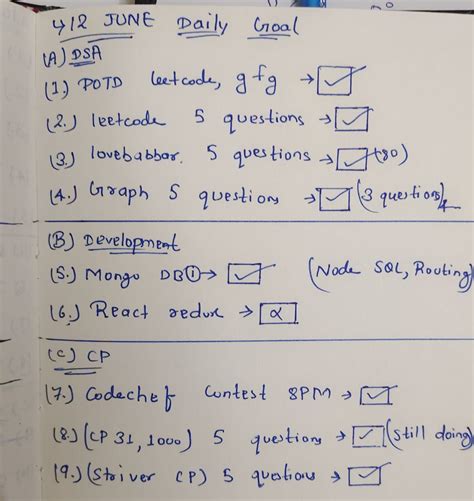 ↳ 12 JUNE Daily Goal
(A) DSA
(1.) POTD leetcode, gfg → ☑
(2.) leetcode 5 questions → ☑
(3.) lovebabbar. 5 questions → ☑ (80)
(4.) Graph 5 questions → ☑ (3 questions)
(B) Development
(5.) Mongo DB① → ☑ (Node SQL, Routing)
(6.) React redux → α
(C) CP
(7.) Codechef Contest 8PM → ☑
(8.) (CP 31, 1000) 5 questions → ☑ (still doing)
(9.) (Striver CP) 5 questions → ☑